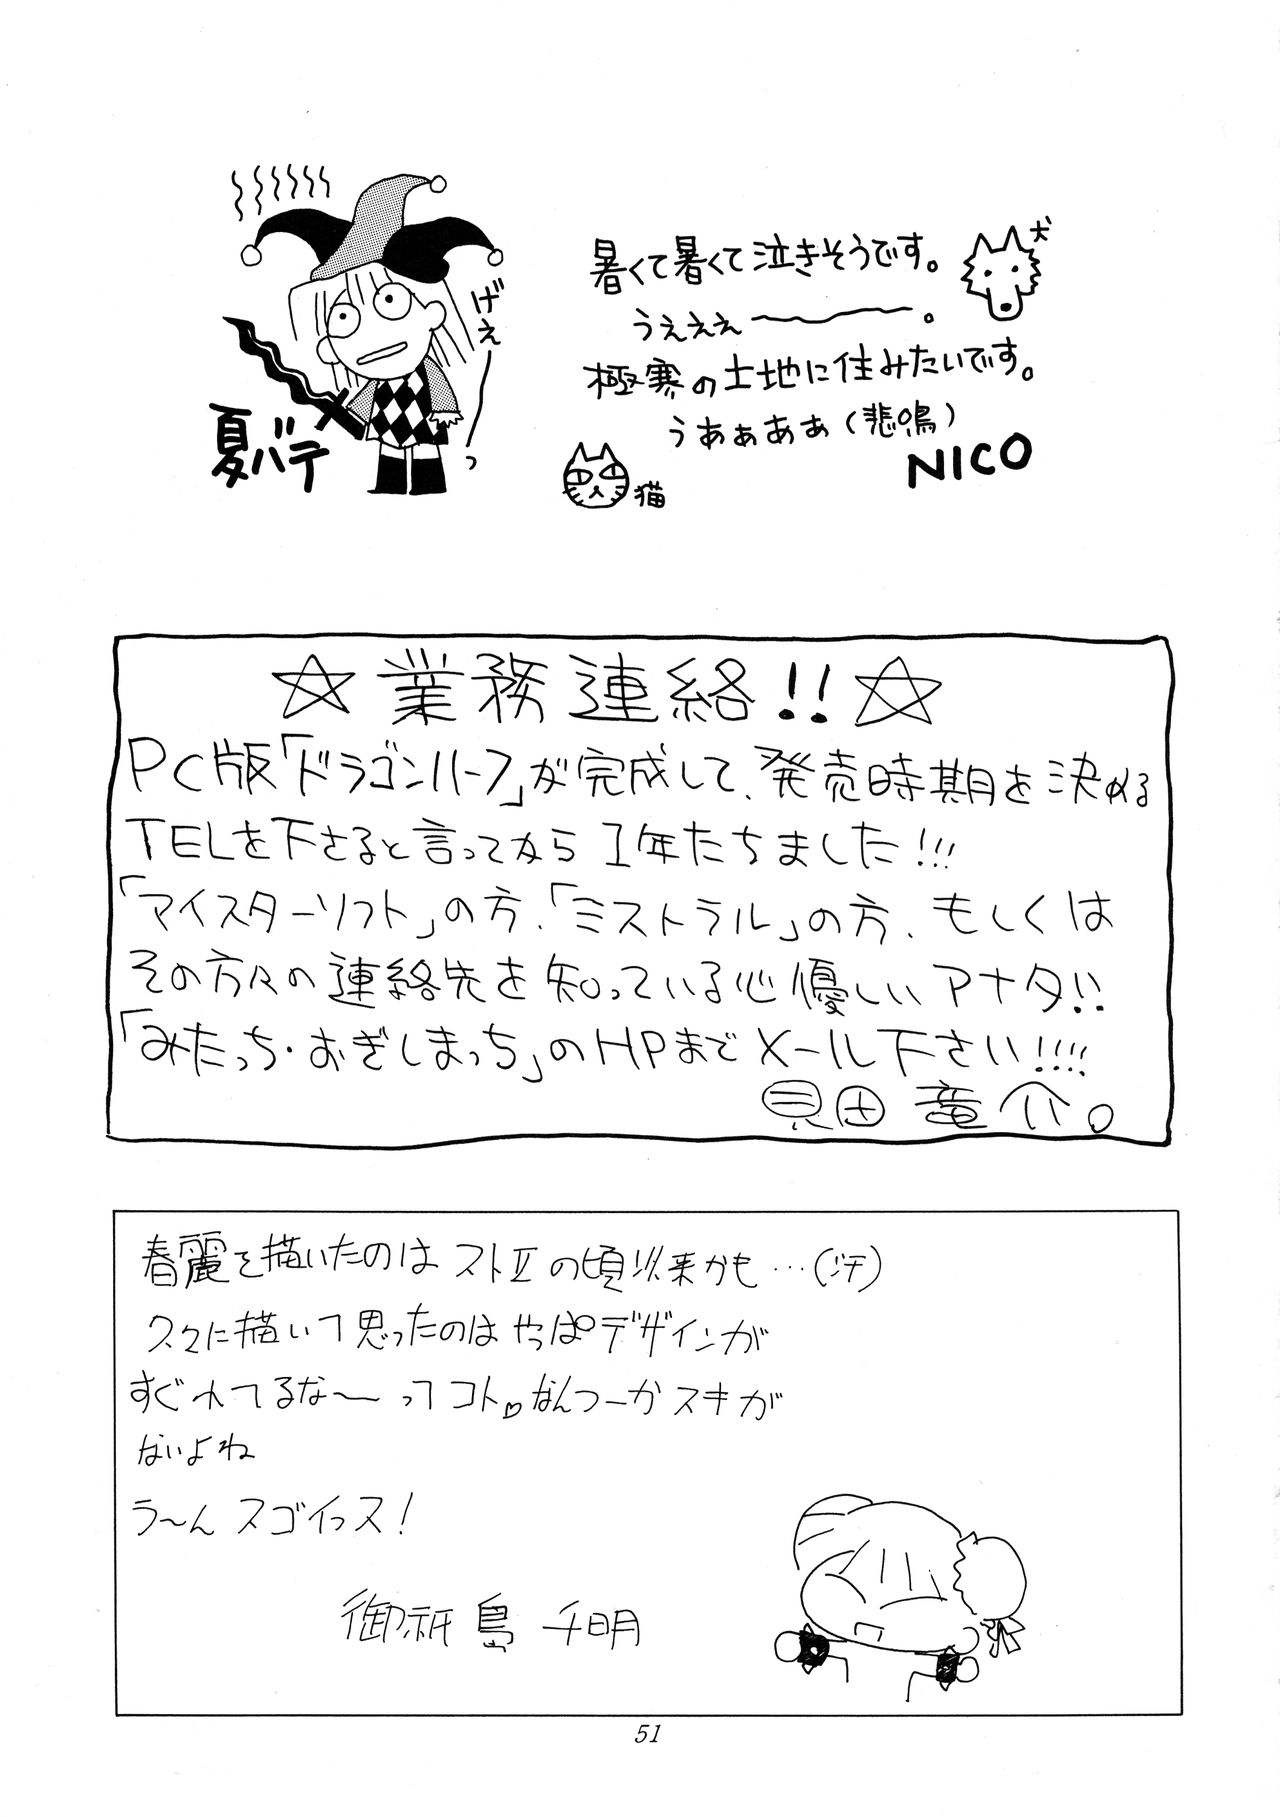 暑くて暑くて泣きそうです。
犬
うぇぇぇ〜〜。
極寒の土地に住みたいです。
うあぁあぁ(悲鳴)
NICO
猫
げぇーっ
夏バテ
☆業務連絡!!☆
PC版「ドラゴンハーフ」が完成して、発売時期を決める
TELを下さると言ってから1年たちました!!!
「マイスターソフト」の方、「ミストラル」の方、もしくは
その方々の連絡先を知っている心優しいアナタ!!
「みたっち・おぎしまっち」のHPまでメール下さい!!!!
見田竜介。
春麗を描いたのはストⅡの頃以来かも…(汗)
久々に描いて思ったのはやっぱデザインが
すぐれてるな〜ってコト♡なんつーかスキが
ないよね
う〜んスゴイっス!
御祇島千明
51